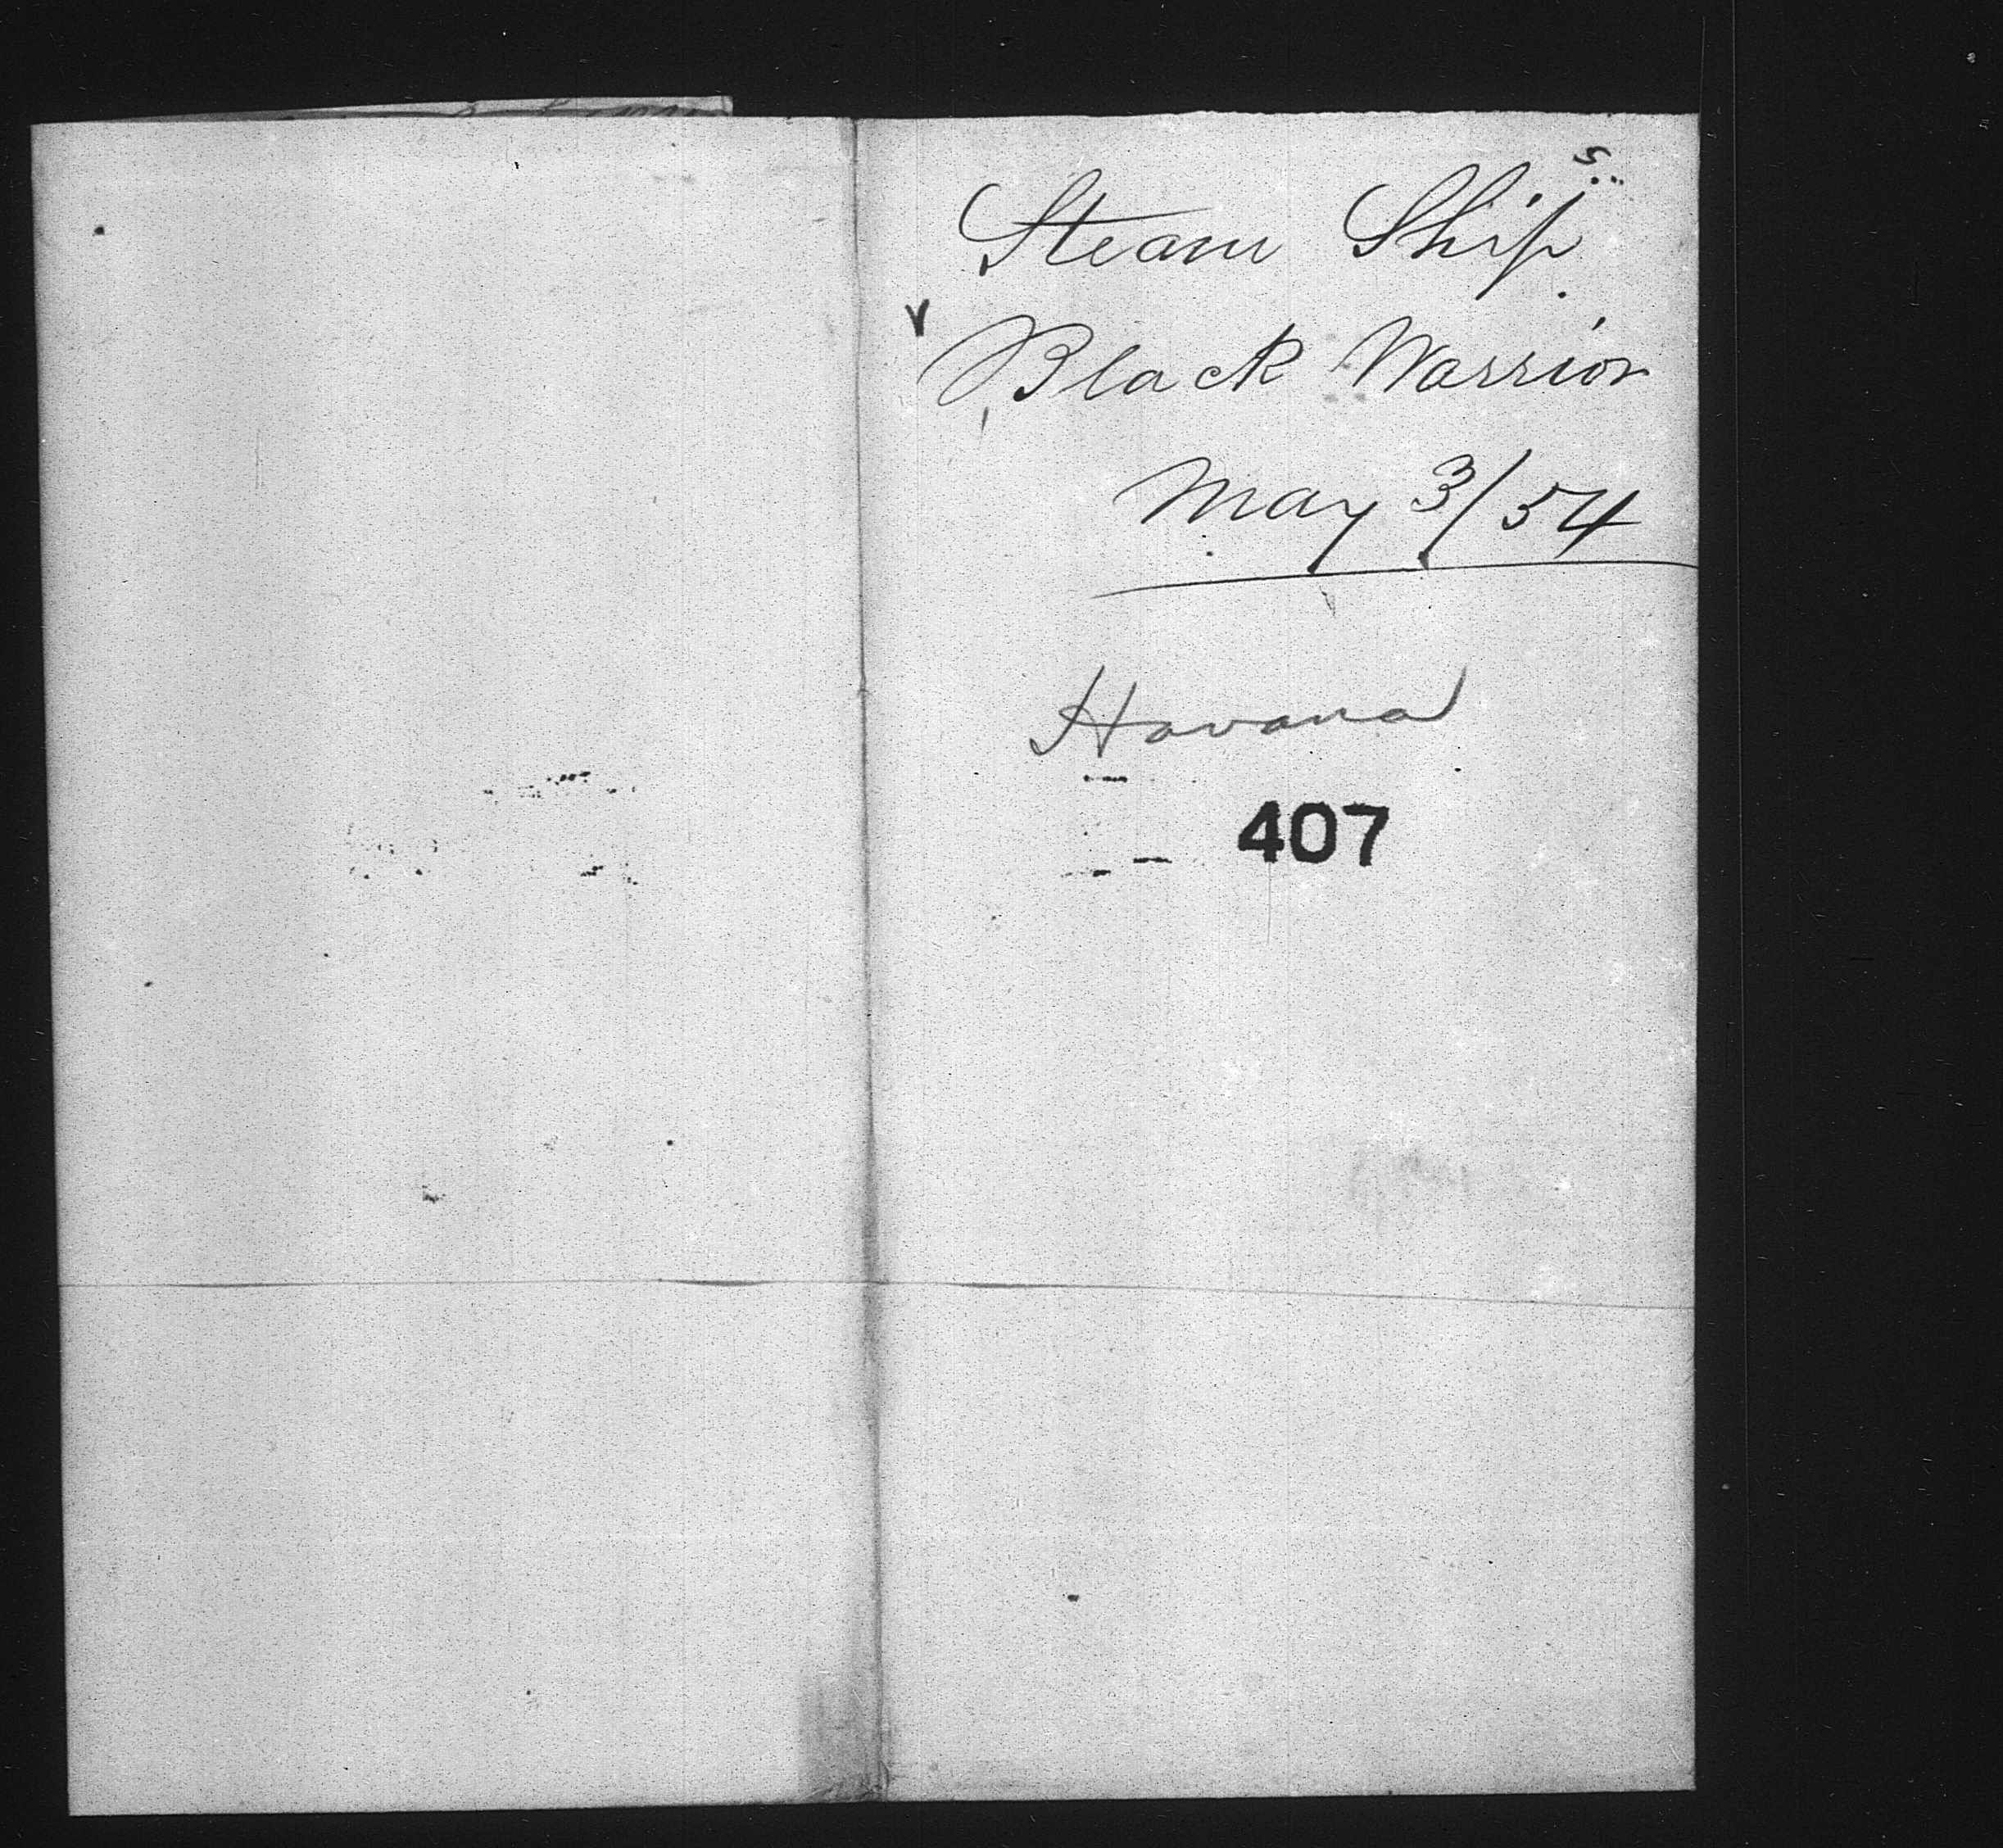 Steam Ship
Black Warrior
May 3/54
Havana
407